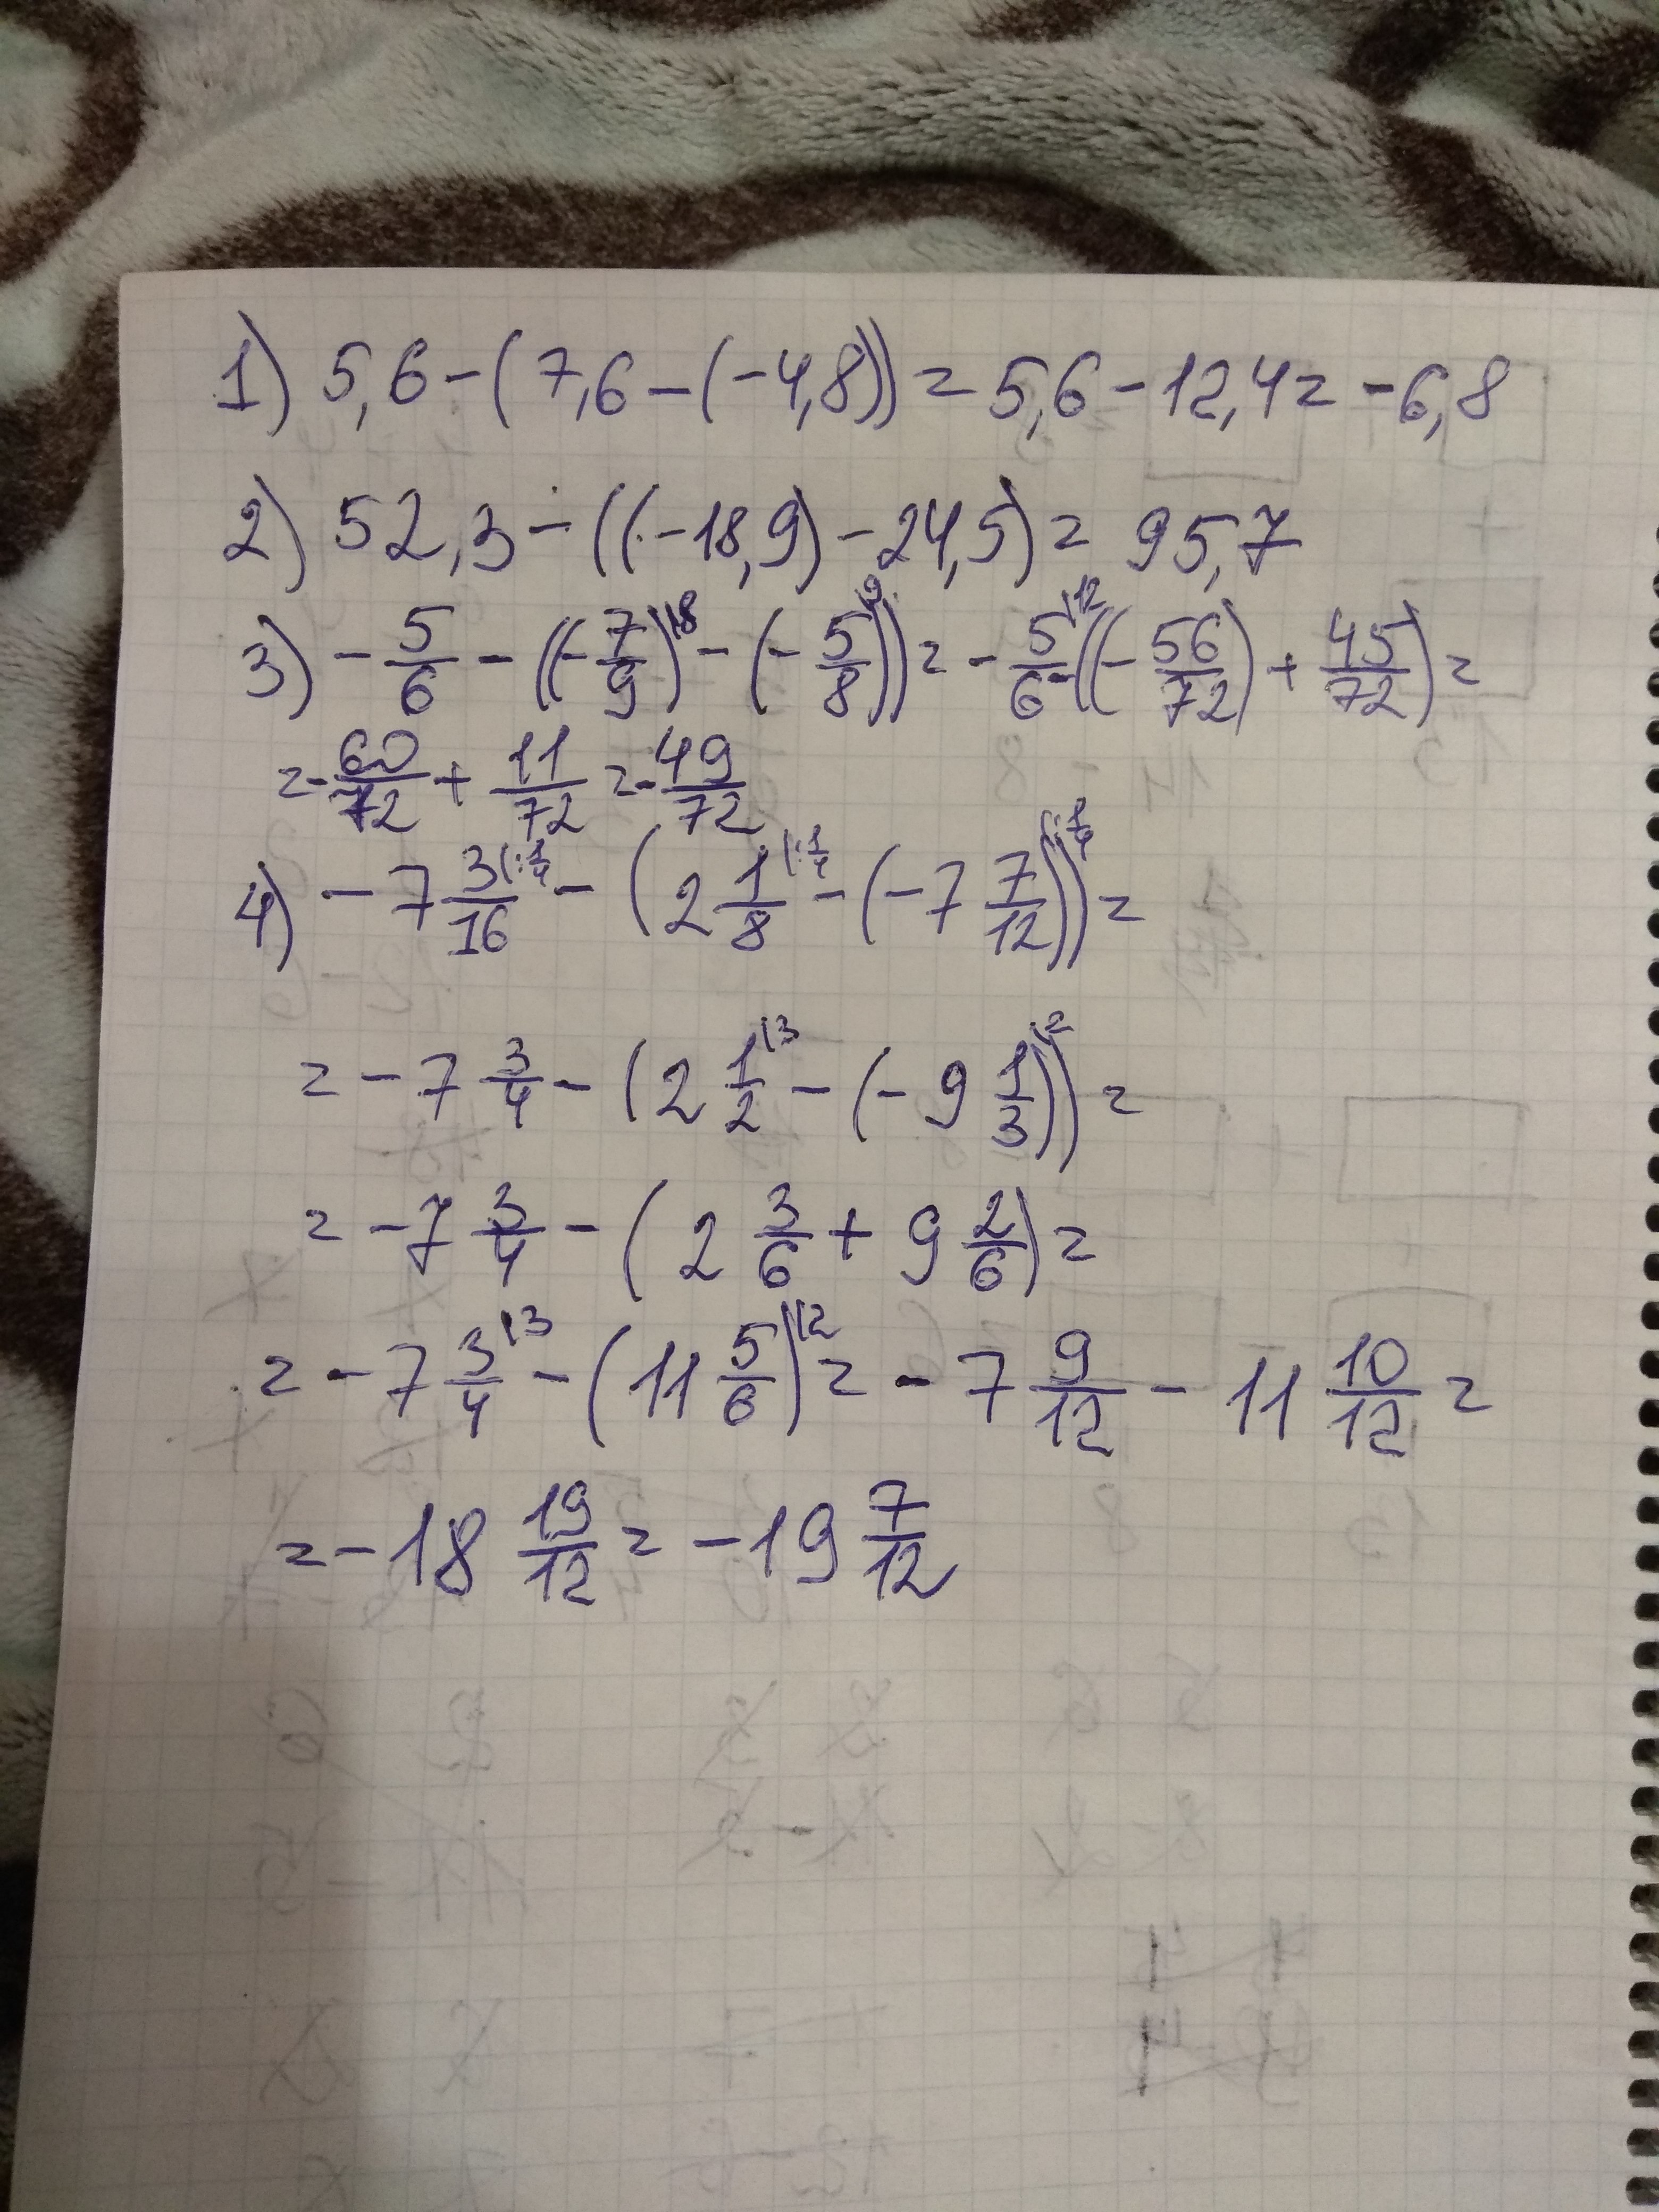 1) 5,6 - (7,6 - (-4,8)) = 5,6 - 12,4 = -6,8
2) 52,3 - ((-18,9) - 24,5) = 95,7
3) - 5/6 - ((- 7/9)^(8 - (- 5/8)^(9) = - 5/6^(12 - ((- 56/72) + 45/72) =
= - 60/72 + 11/72 = - 49/72
4) - 7 3/16^(:1/4 - (2 1/8^(:1/4 - (- 7 7/12))^(:1/4 =
= - 7 3/4 - (2 1/2^(3 - (- 9 1/3))^(2 =
= - 7 3/4 - (2 3/6 + 9 2/6) =
= - 7 3/4^(3 - (11 5/6)^(2 = - 7 9/12 - 11 10/12 =
= - 18 19/12 = - 19 7/12